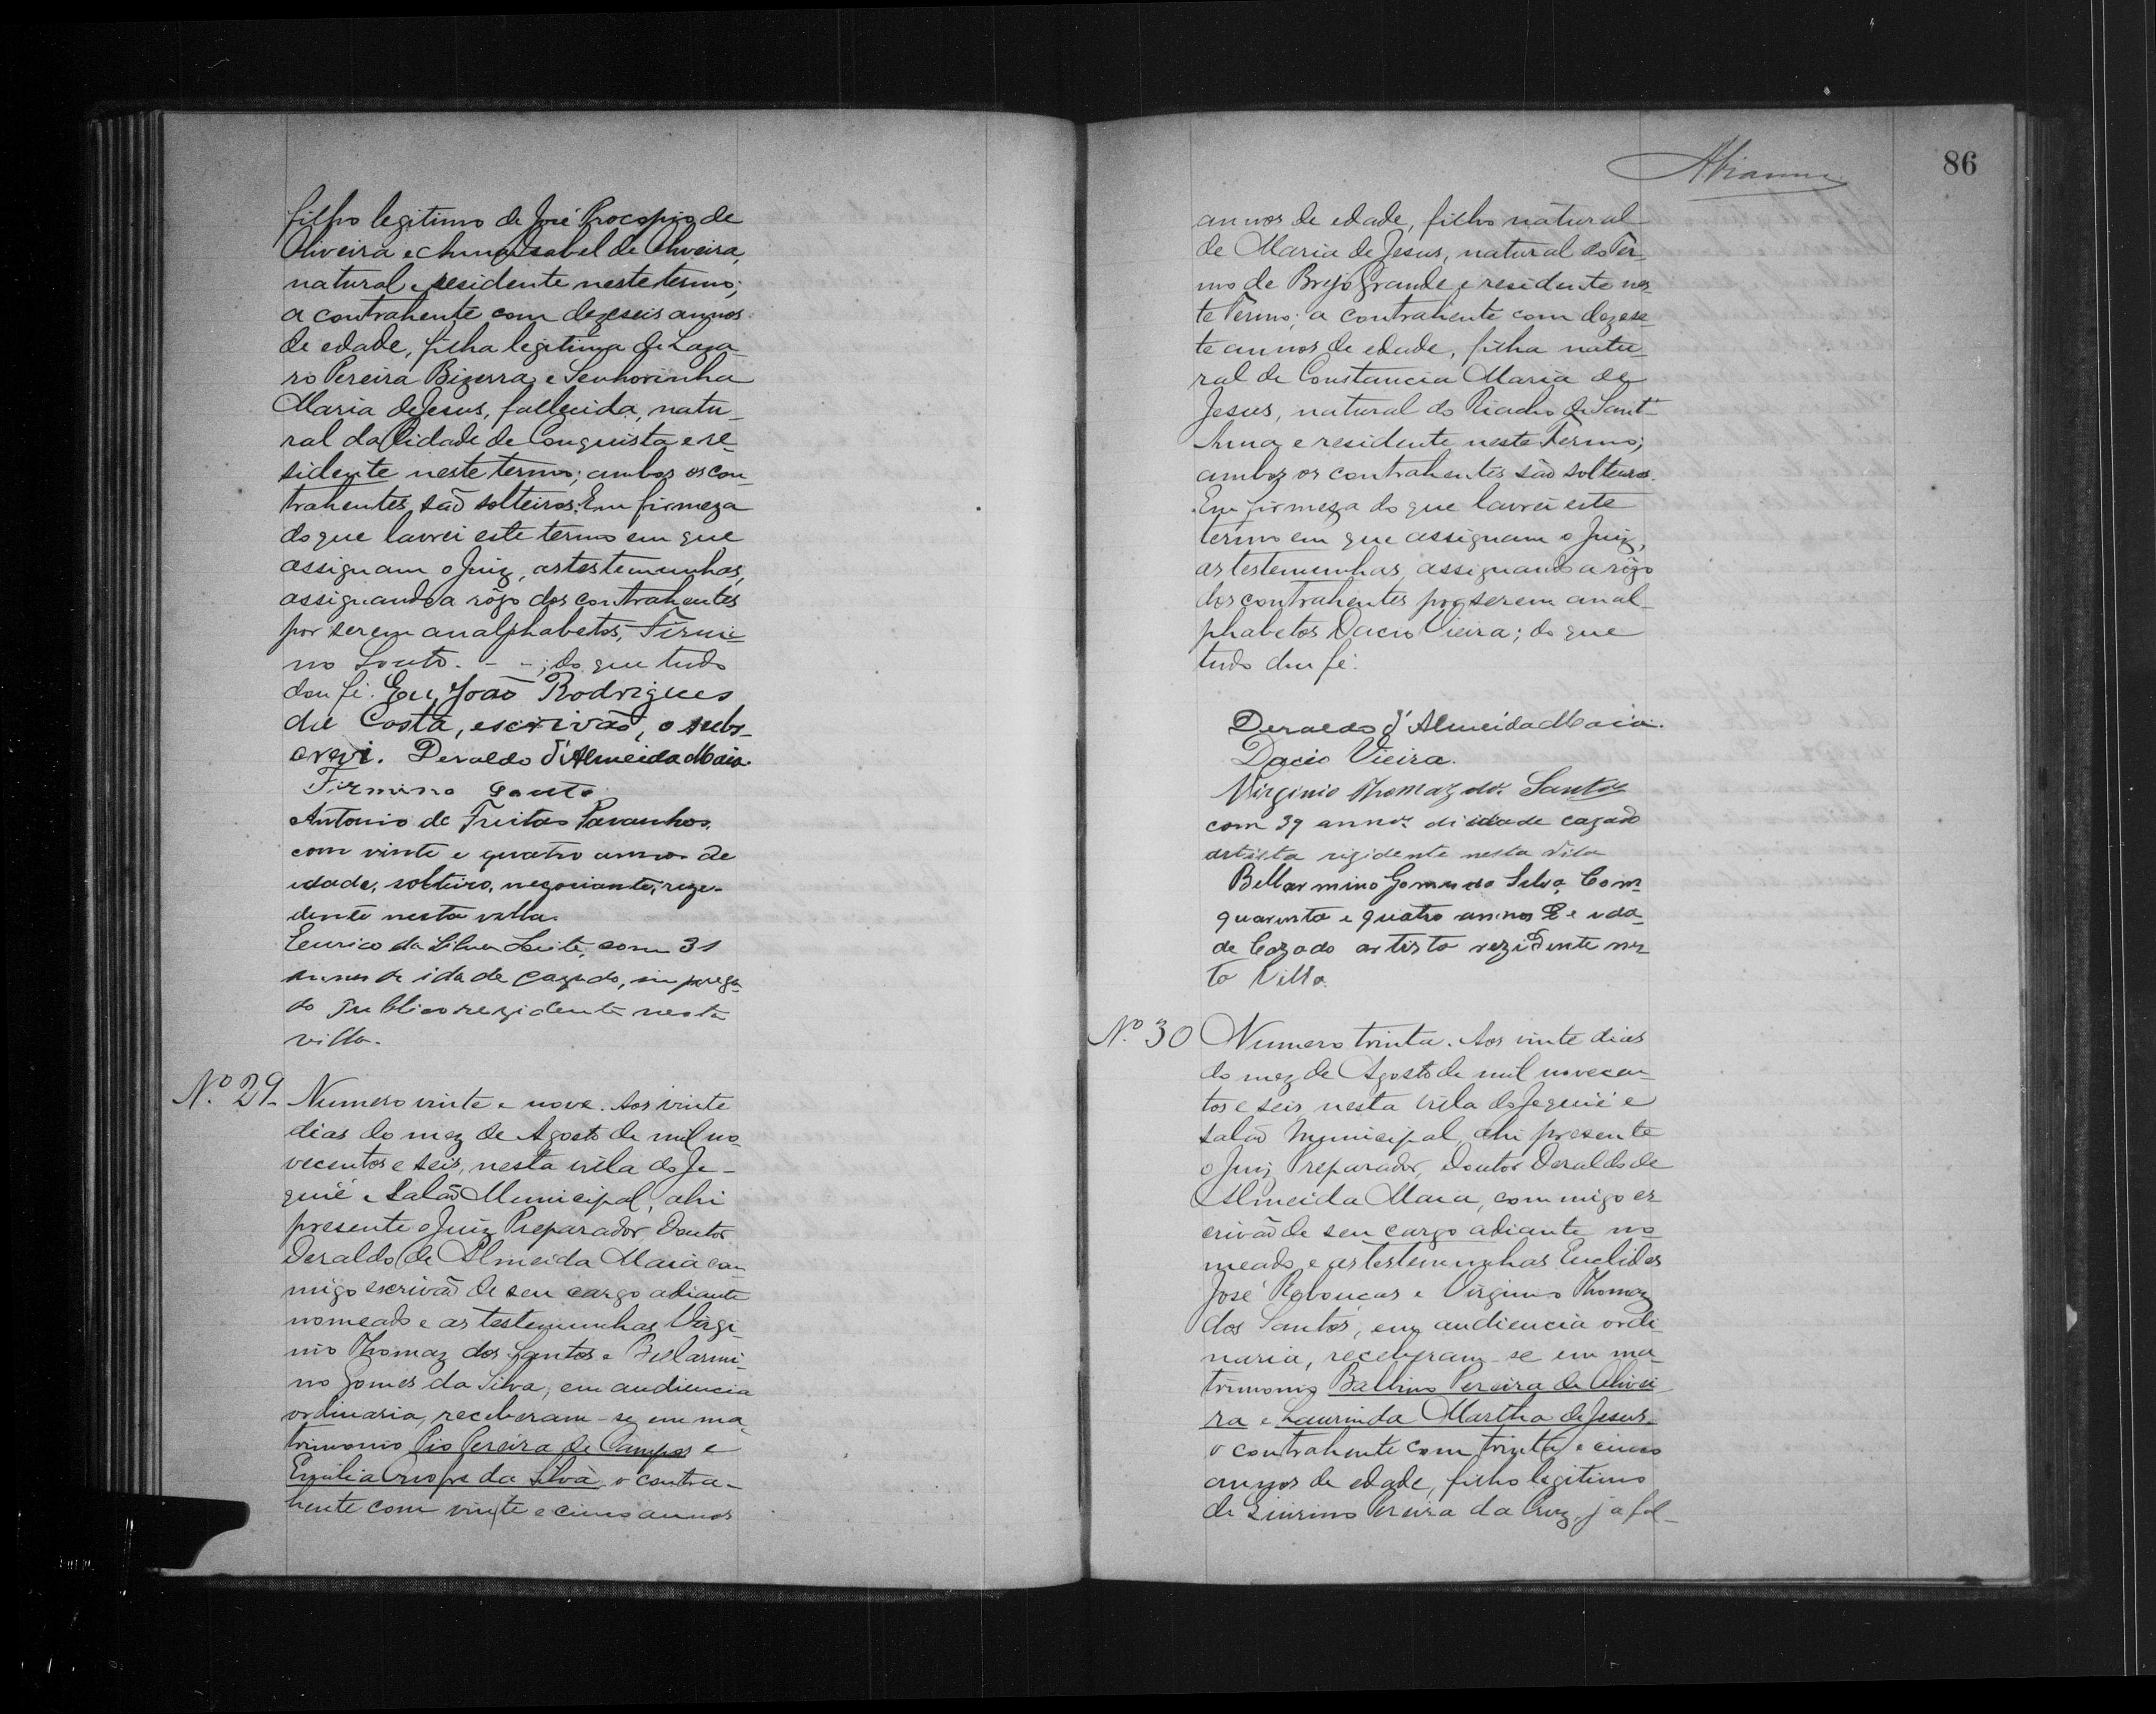 filho legitimo de José Procopio de
Oliveira e Anna Isabel de Oliveira,
natural e residente neste termo;
a contrahente com dezeseis annos
de edade, filha legitima de Laza-
ro Pereira Bizerra e Senhorinha
Maria de Jesus, fallecida, natu-
ral da Cidade de Conquista e re-
sidente neste termo; ambos os con-
trahentes são solteiros. Em firmeza
do que lavrei este termo em que
assignam o Juiz, as testemunhas,
assignando a rôgo dos contrahentes
por serem analphabetos, Firmi-
no Souto. - - ; do que tudo
dou fé. Eu, João Rodrigues
da Costa, escrivão, o subs-
crevi. Deraldo d'Almeida Maia.
Firmino Souto
Antonio de Freitas Paranhos.
com vinte e quatro annos de
idade, solteiro, negociante, reze-
dente nesta villa.
Eurico da Silva Leite, com 31
annos de idade cazado, imprega-
do Publico rezidente nesta
villa.
Nº 29- Numero vinte e nove. Aos vinte
dias do mez de Agosto de mil no-
vecentos e seis, nesta villa do Je-
quié e Salão Municipal, ahi
presente o Juiz Preparador, Doutor
Deraldo de Almeida Maia com-
migo escrivão de seu cargo adiante
nomeado e as testemunhas Virgi-
nio Thomaz dos Santos e Bellarmi-
no Gomes da Silva, em audiencia
ordinaria, receberam-se em ma-
trimonio Pio Pereira de Campos e
Emilia da Silva o contra-
hente com vinte e cinco annos
86
annos de edade, filho natural
de Maria de Jesus, natural do Ter-
mo de Brejo Grande e residente nes-
te Termo; a contrahente com dezese-
te annos de edade, filha natu-
ral de Constancia Maria de
Jesus, natural do Riacho de Sant'
Anna e residente neste Termo;
ambos os contrahentes são solteiros.
Em firmeza do que lavrei este
termo em que assignam o Juiz,
as testemunhas, assignando a rôgo
dos contrahentes por serem anal-
phabetos Dacio Vieira; do que
tudo dou fé.
Deraldo d'Almeida Maia.
Dacio Vieira.
Virginio Thomaz dos Santos
com 39 annos di idade cazado
artista rizidente nesta Villa
Bellarmino Gomes da Silva, Com
quarenta e quatro annos de ida-
de Cazado artista rezidente nes-
ta Villa.
Nº 30 Numero trinta. Aos vinte dias
do mez de Agosto de mil novecen-
tos e seis, nesta villa do Jequié e
salão Municipal, ahi presente
o Juiz Preparador, Doutor Deraldo de
Almeida Maia, commigo es-
crivão de seu cargo adiante no-
meado e as testemunhas Euclides
José Rebouças e Virginio Thomaz
dos Santos, em audiencia ordi-
naria, receberam-se em ma-
trimonio Balbino Pereira de Olivei-
ra e Laurinda Martha de Jesus.
o contrahente com trinta e cinco
annos de edade, filho legitimo
de Pereira da Cruz, já fal-